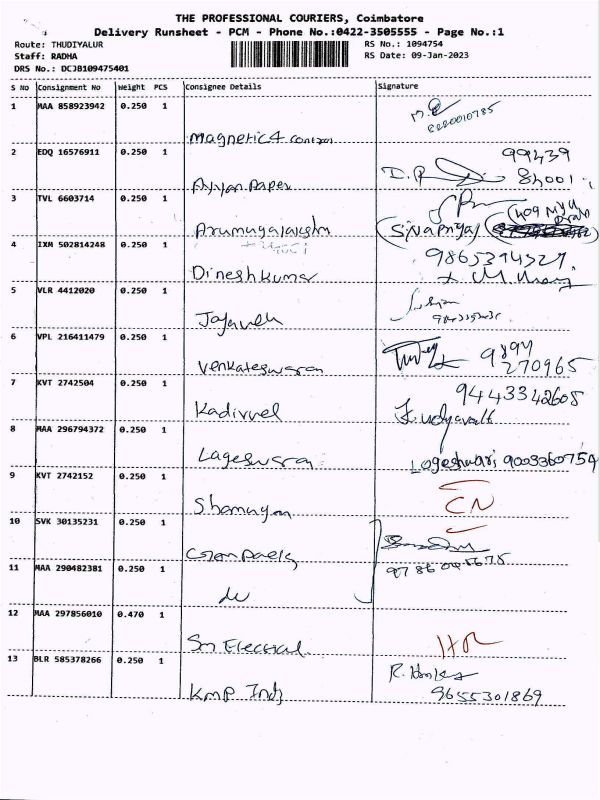 THE PROFESSIONAL COURIERS, Coimbatore
Delivery Runsheet - PCM - Phone No.:0422-3505555 - Page No.:1
Route: THUDIYALUR RS No.: 1094754
Staff: RADHA RS Date: 09-Jan-2023
DRS No.: DCJB109475401
S No Consignment No Weight PCS Consignee Details Signature
1 MAA 858923942 0.250 1
Magnetic4 Control
2 EDQ 16576911 0.250 1 99439
Ayyan Paper 84001
3 TVL 6603714 0.250 1
Arumugalakshmi Sivapriya
4 IXM 502814248 0.250 1
Dineshkumar
5 VLR 4412020 0.250 1
6 VPL 216411479 0.250 1
Venkateswaran 9894 270965
7 KVT 2742504 0.250 1 9443342608
Kadirvel
8 MAA 296794372 0.250 1
Lageswaran Logeshwari 9003360754
9 KVT 2742152 0.250 1 CN
10 SVK 30135231 0.250 1
11 MAA 290482381 0.250 1
12 MAA 297856010 0.470 1
Sm Electrical
13 BLR 585378266 0.250 1
Kmp Ind 9655301869